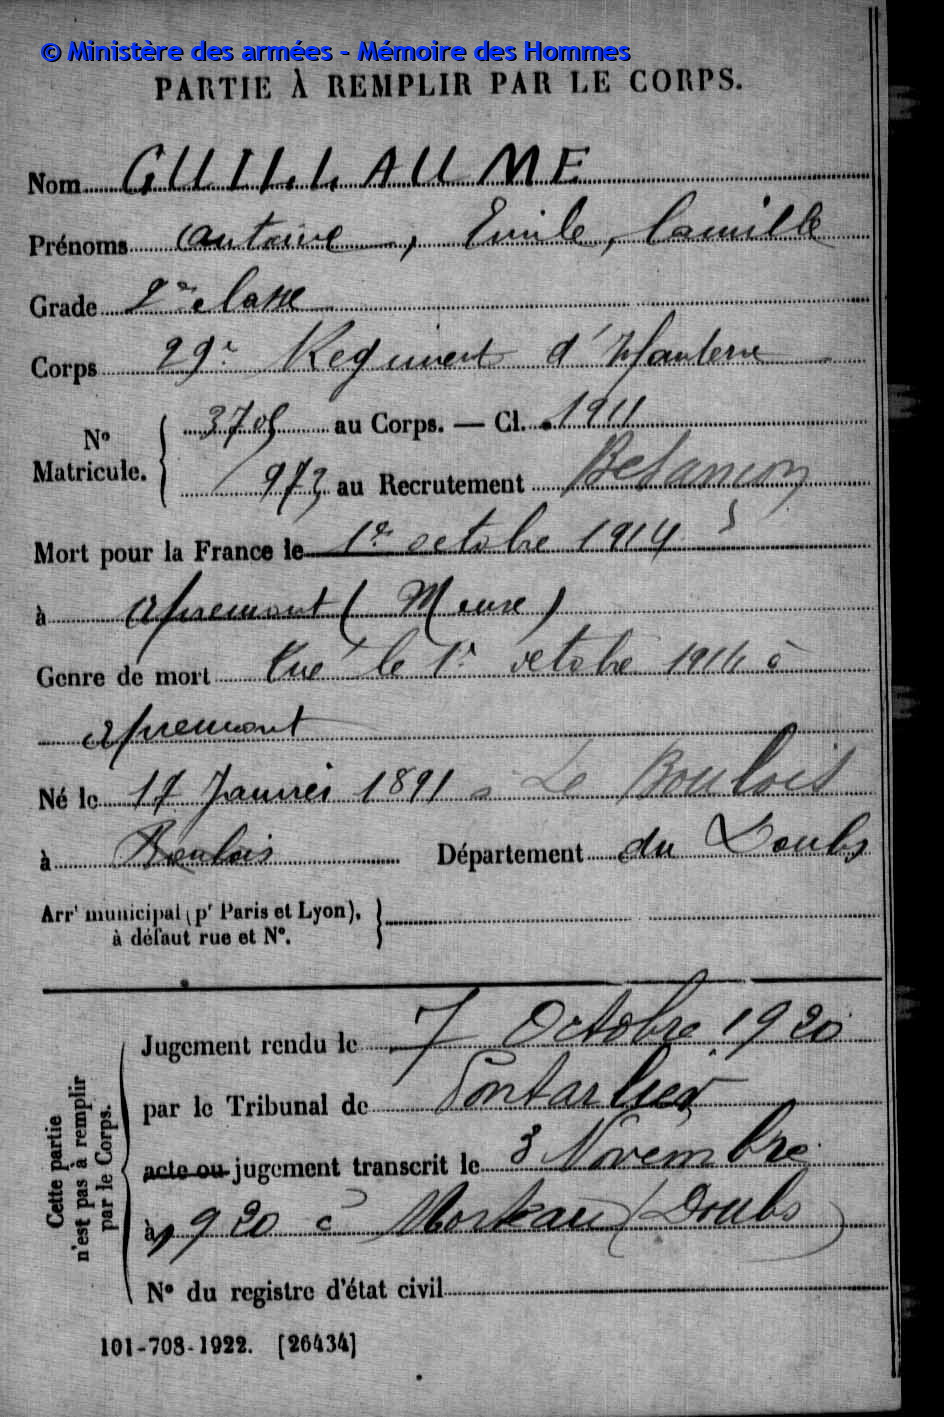 © Ministère des armées - Mémoire des Hommes
PARTIE À REMPLIR PAR LE CORPS.
Nom GUILLAUME
Prénoms Antoine, Emile, Camille
Grade 2e classe
Corps 29e Régiment d'Infanterie
N° Matricule. 3705 au Corps. — Cl. 1911
973 au Recrutement Besançon
Mort pour la France le 1er octobre 1914
à Apremont (Meuse)
Genre de mort Tué le 1er octobre 1914 à
Apremont
Né le 17 Janvier 1891 à Le Boulois
à Boulois Département du Doubs
Arrt municipal (pr Paris et Lyon),
à défaut rue et N°.
Cette partie
n'est pas à remplir
par le Corps.
Jugement rendu le 7 Octobre 1920
par le Tribunal de Pontarlier
acte ou jugement transcrit le 3 Novembre
à 1920 à Morteau (Doubs)
N° du registre d'état civil
101-708-1922. [26434]